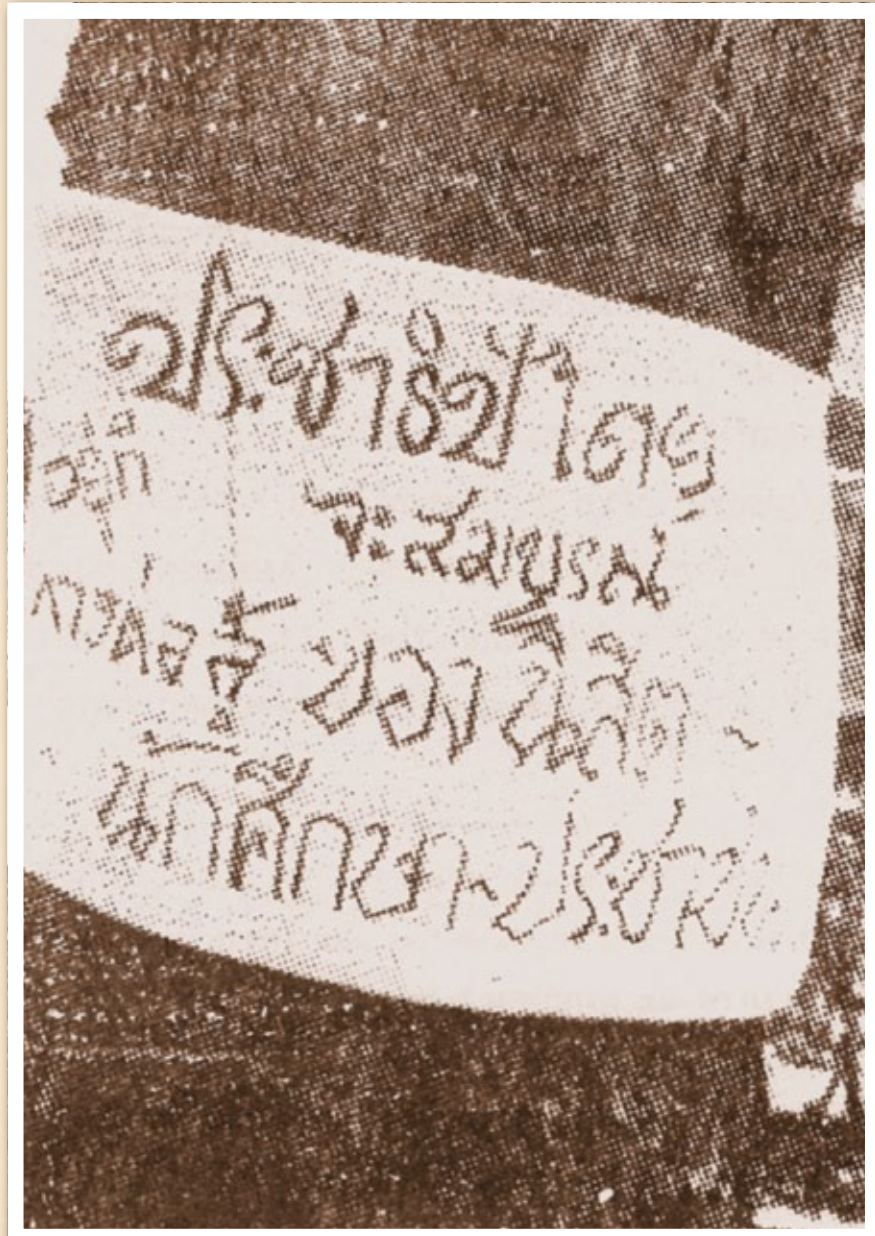 ประชาธิปไตย
จะสมบูรณ์
การต่อสู้ ของ นิสิต
นักศึกษา-ประชาชน